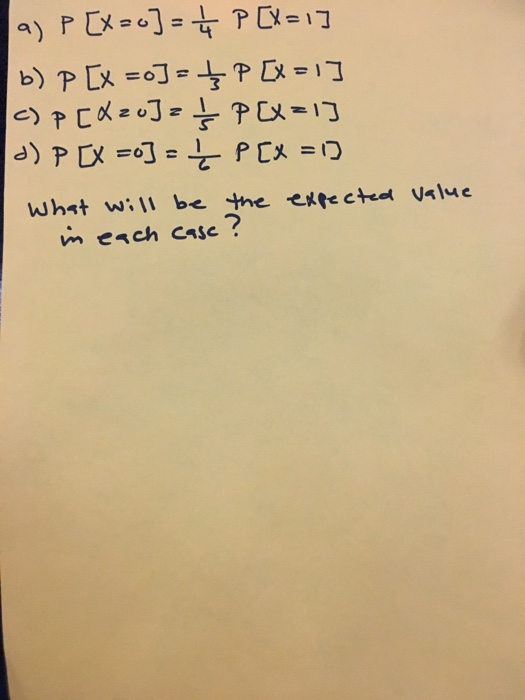 a) P [X=0] = 1/4 P [X=1]
b) P [X=0] = 1/3 P [X=1]
c) P [X=0] = 1/5 P [X=1]
d) P [X=0] = 1/6 P [X=1]
What will be the expected value
in each case?